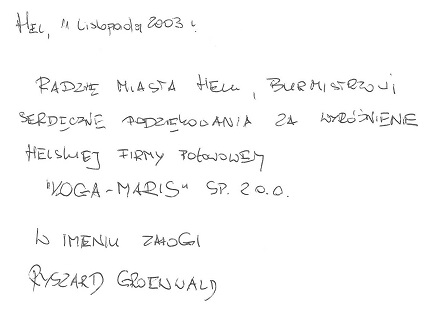 Hel, 11 Listopada 2003 r.
RADZIE MIASTA HELU, BURMISTRZOWI
SERDECZNE PODZIĘKOWANIA ZA WYRÓŻNIENIE
HELSKIEJ FIRMY POŁOWOWEJ
"KOGA-MARIS" SP. Z O.O.
W IMENIU ZAŁOGI
RYSZARD GROENWALD